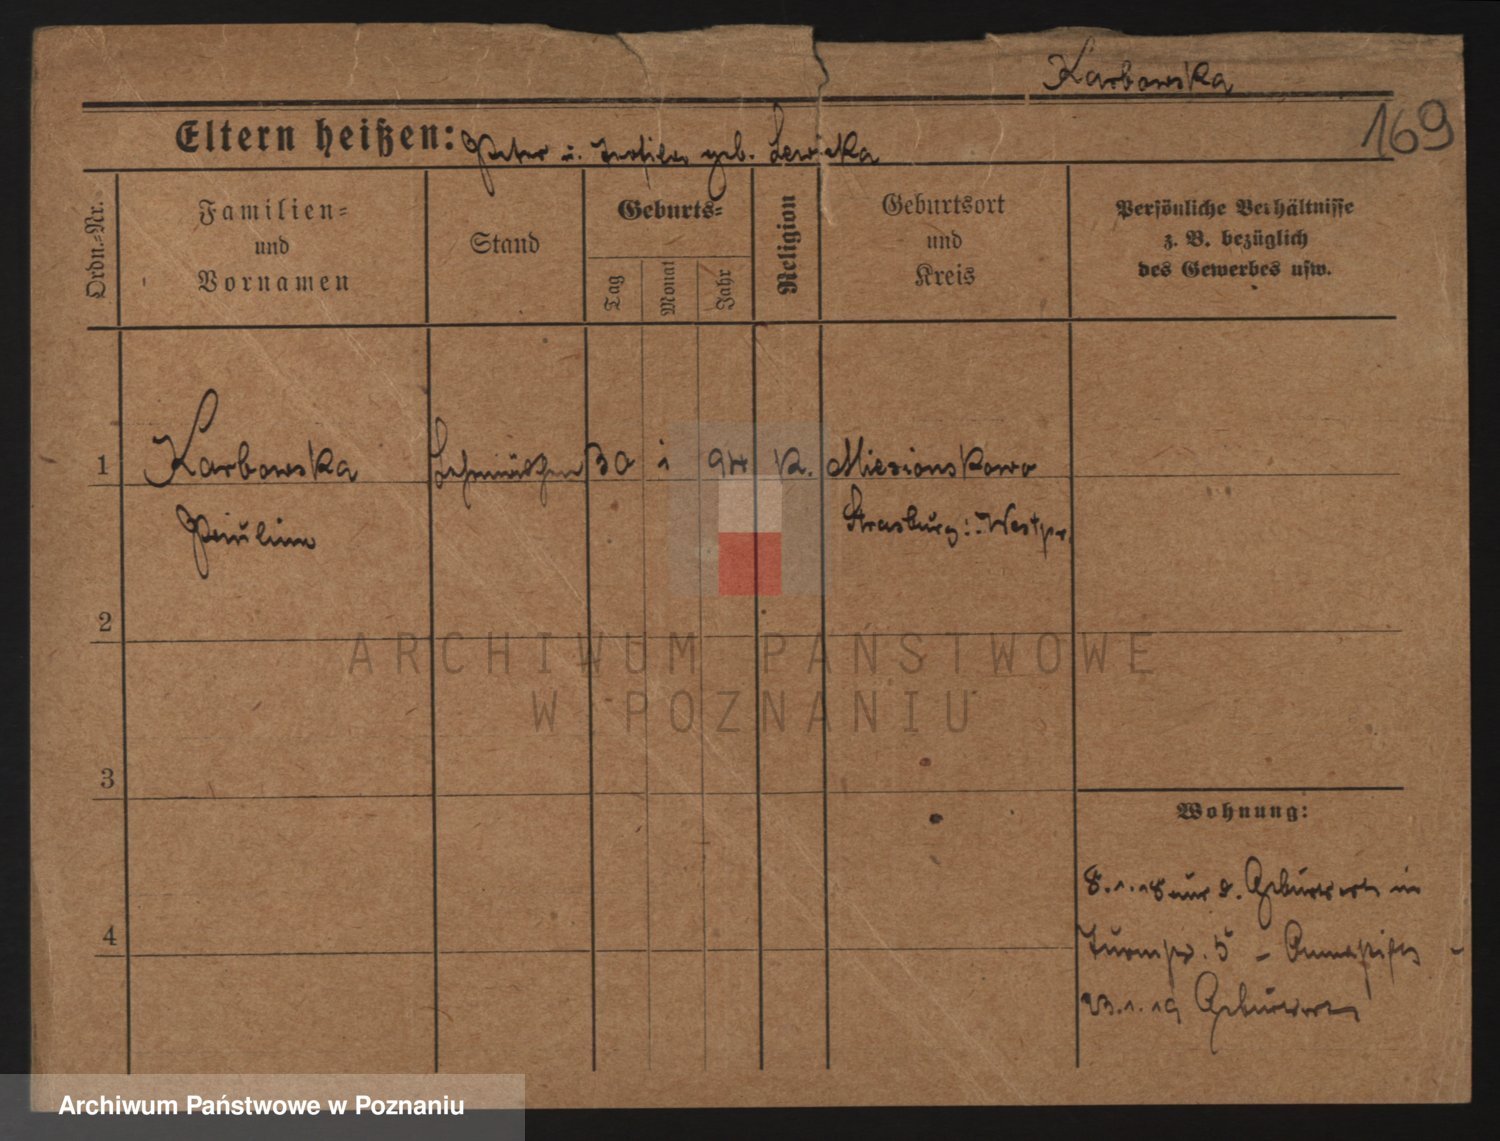 Karbowska
169
Eltern heißen: Peter u. geb. Lewicka
Ordn.-Nr.
Familien=
und
Vornamen
Stand
Geburts=
Tag
Monat
Jahr
Religion
Geburtsort
und
Kreis
Persönliche Verhältnisse
z. B. bezüglich
des Gewerbes usw.
1 Karbowska 30 1 94 K. Miesionskowo
Strasburg: Westpr.
2
3
4
Wohnung:
8.1.18 Geburtsort in
5 –
23.1.19 Geburtsort
ARCHIWUM PAŃSTWOWE
W POZNANIU
Archiwum Państwowe w Poznaniu